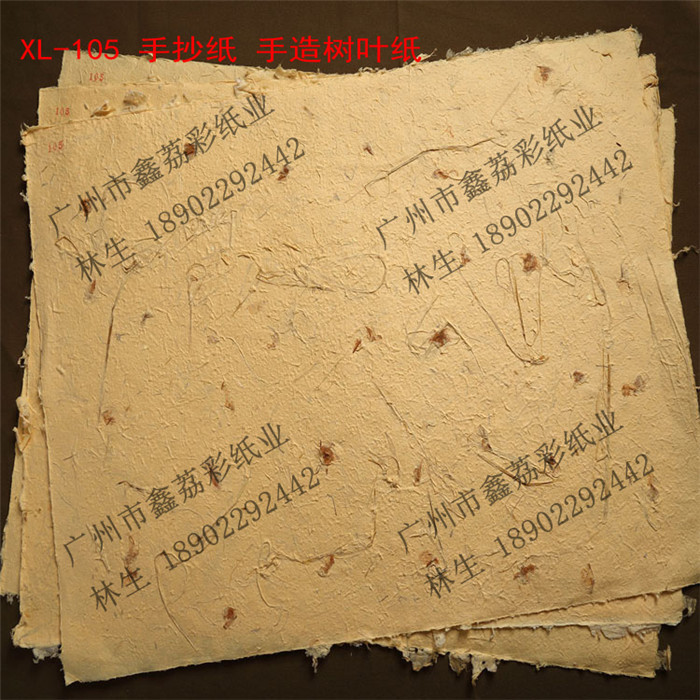 XL-105 手抄纸 手造树叶纸
105
105
105
广州市鑫荔彩纸业
林生 18902292442
广州市鑫荔彩纸业
林生 18902292442
广州市鑫荔彩纸业
林生 18902292442
广州市鑫荔彩纸业
林生 18902292442